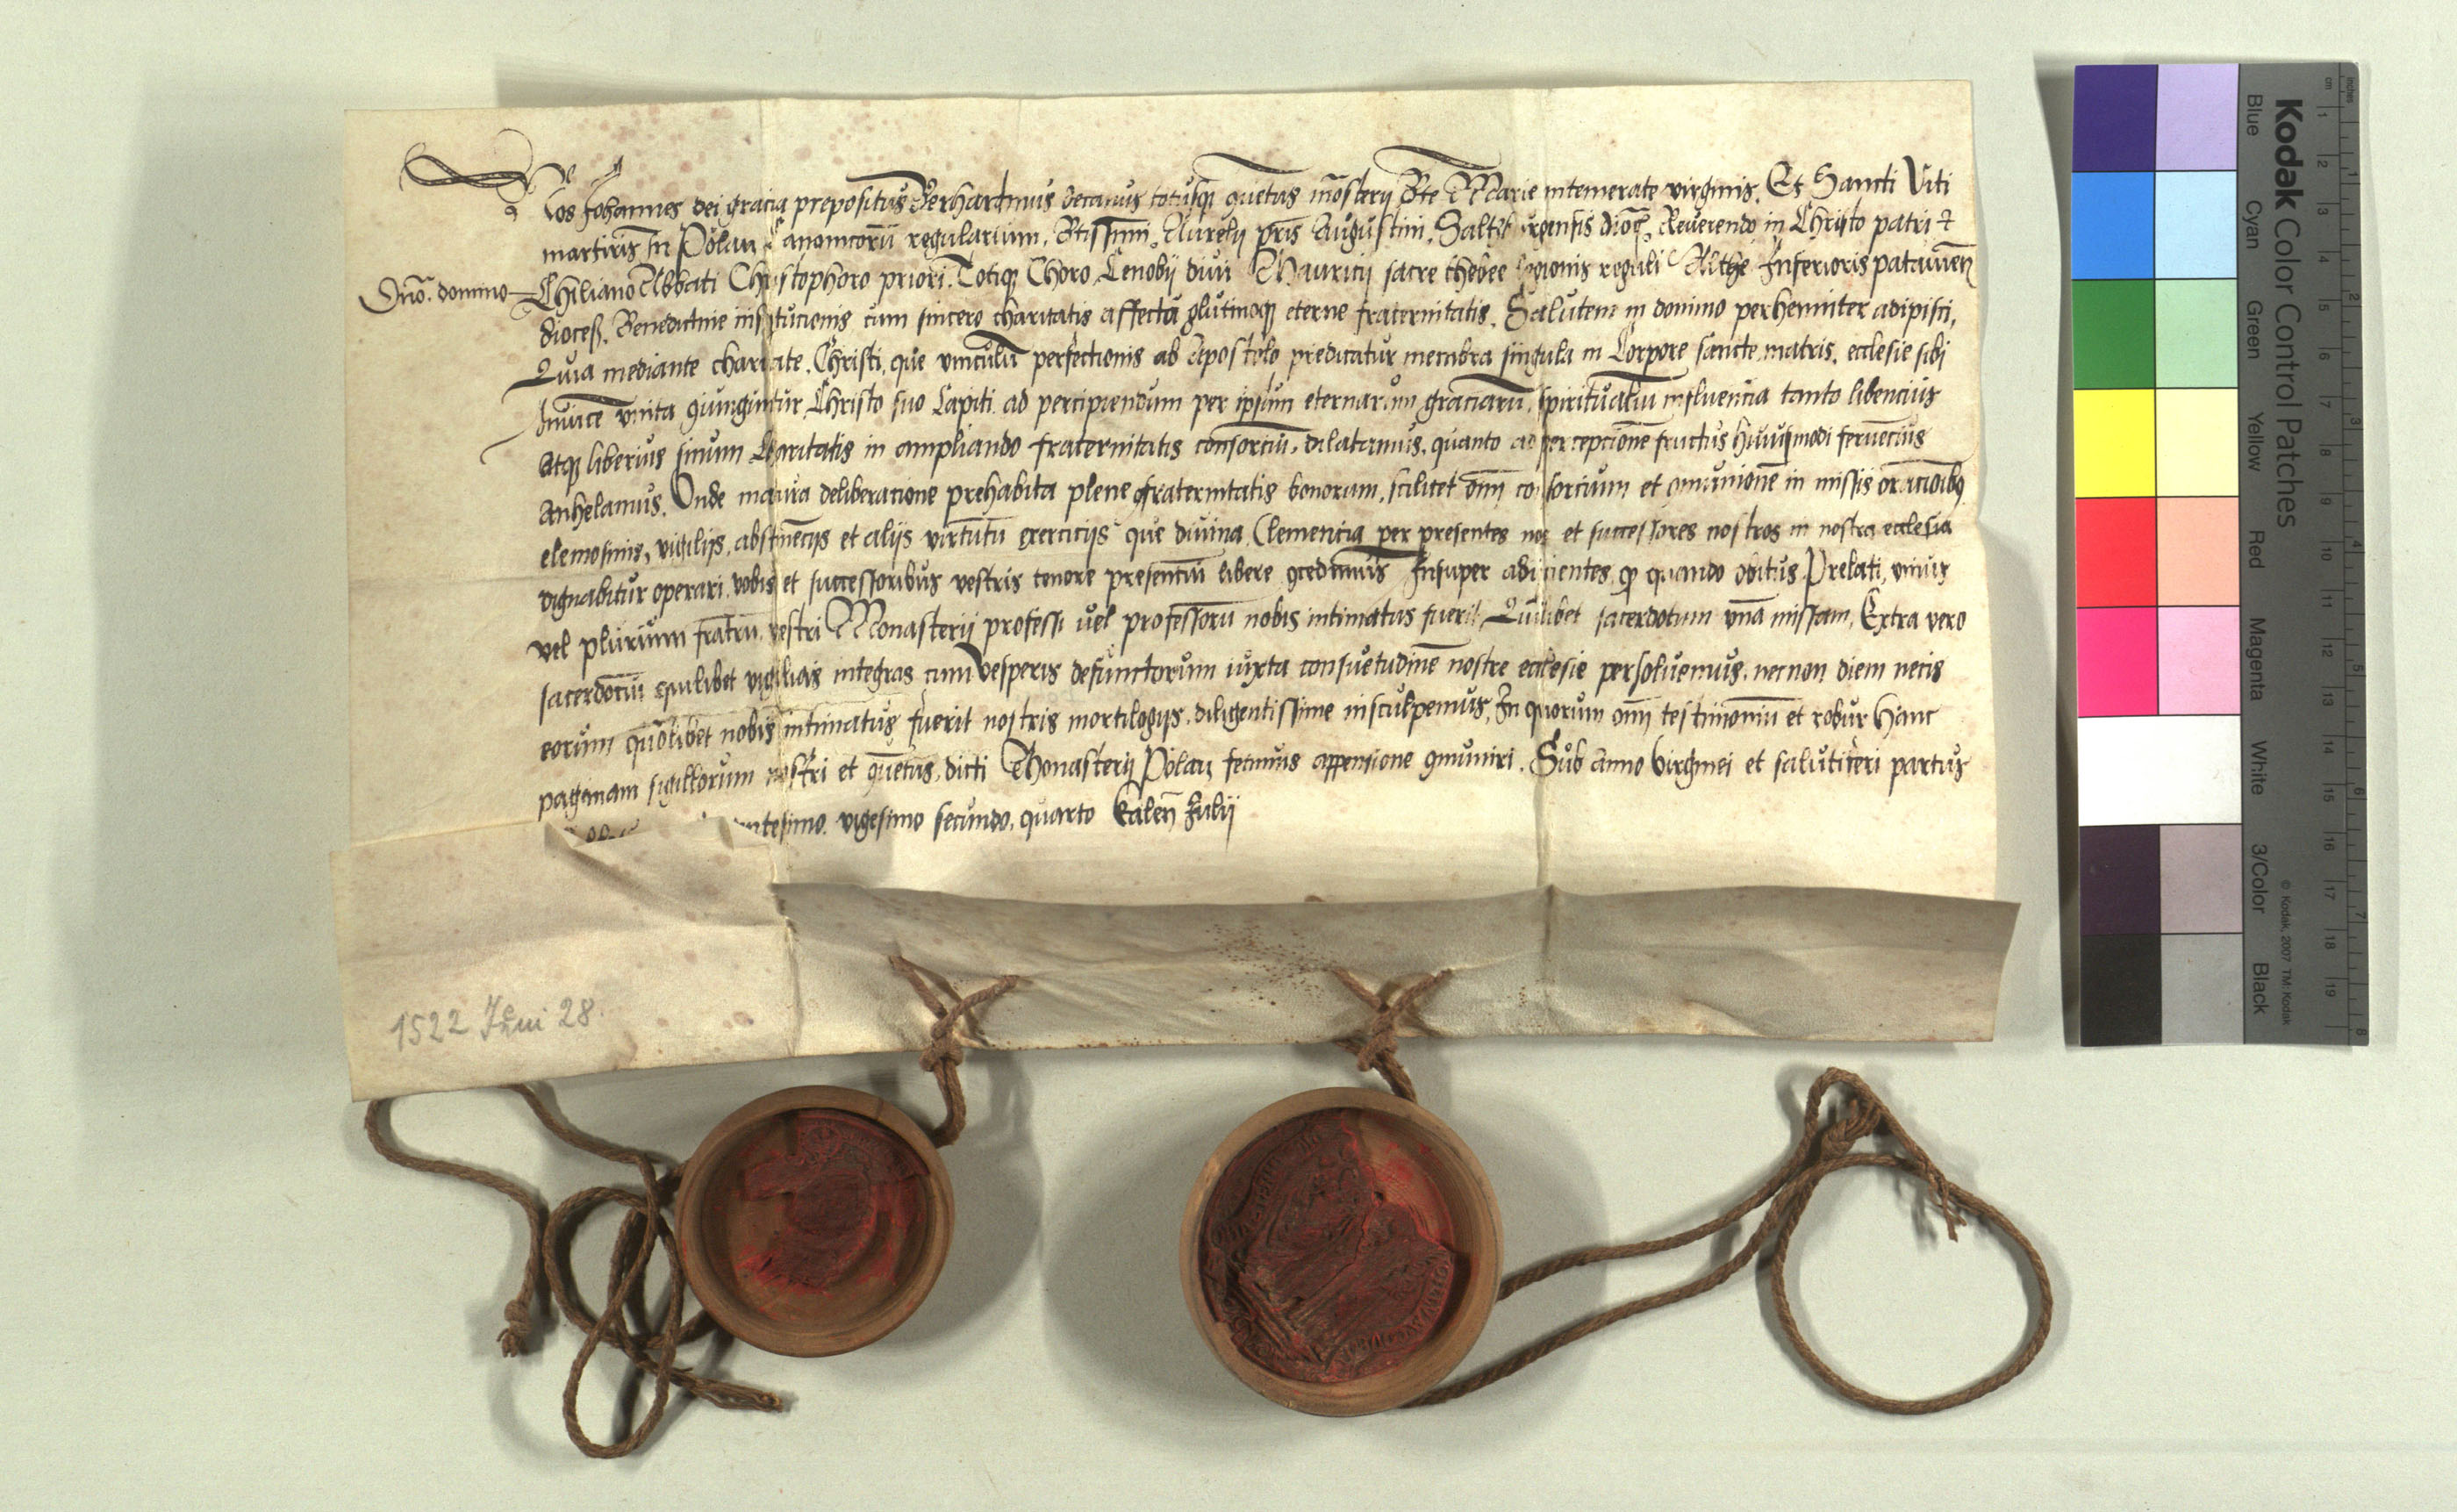 Nos Johannes dei gracia prepositus Gerhardmus decanus totusq̃ ꝯuetus mõsterij Bte Marie intemerate virginis. Et Sancti Viti
martiris In Pölan Canonicorũ regularium. Btissimi. Aurelij pris Augustini. Saltzburgensis dioc. Reverendo in Christo patri
Dño. domino Chiliano Abbati Christophoro priori. Totiq̃ Choro Cenobij divi Mauricij sacre thebee legionis reguli Althe Inferioris patavien̄
dioceß. Benedictine institucionis cum sincero charitatis affectu glutinoq̃ eterne fraternitatis. Salutem in domino perhenniter adipisci,
Quia mediante charitate. Christi, que vinculũ perfectionis ab Apostolo predicatur membra singula in Corpore sancte matris. ecclesie sibi
Invicẽ vnita ꝯiunguntur Christo suo Capiti. ad percipiendum per ipsum eternarum graciarũ, spiritualiũ influencia tanto libencius
Atq̃ liberius sinum Charitatis in ampliando fraternitatis consorciũ. dilatamus. quanto ad percepcionẽ fructus huiusmodi fervẽcius
Anhelamus. Unde matura deliberacione prehabita plene ꝯfraternitatis bonorum, scilicet om̃i consorcium et ꝯmunionẽ in missis oracionibꝰ
elemosinis, vigilijs, abstinẽcijs et alijs virtutũ exercicijs que divina Clemencia per presentes nos et successores nostros in nostra ecclesia
dignabitur operari. vobis et successoribus vestris tenore presenciũ libere ꝯcedimus Insuper adijcientes ꝙ quando obitus Prelati, vnius
vel plurium fratrũ vestri Monasterij professi vel professorũ nobis intimatus fuerit Quilibet sacerdotum vnã missam, Extra vero
sacerdociũ quilibet vigilias integras cum vesperis defunctorum iuxta consuetudinẽ nostre ecclesie persolvemus. necnon diem necis
eorum quotibet nobis intimatus fuerit nostris mortilogijs. diligentissime insculpemus, In quorum om̃i testimoniũ et robur hanc
paginam sigillorum nostri et ꝯuẽtus, dicti Monasterij Pölan, fecimus appensione ꝯmuniri. Sub anno virginei et salutiferi partus
vigesimo secundo. quarto Kalen̄ Julij
1522 Juni 28.
Kodak Color Control Patches
© Kodak, 2007 TM: Kodak
Blue Cyan Green Yellow Red Magenta White 3/Color Black
cm 1 2 3 4 5 6 7 8 9 10 11 12 13 14 15 16 17 18 19
inches 1 2 3 4 5 6 7 8